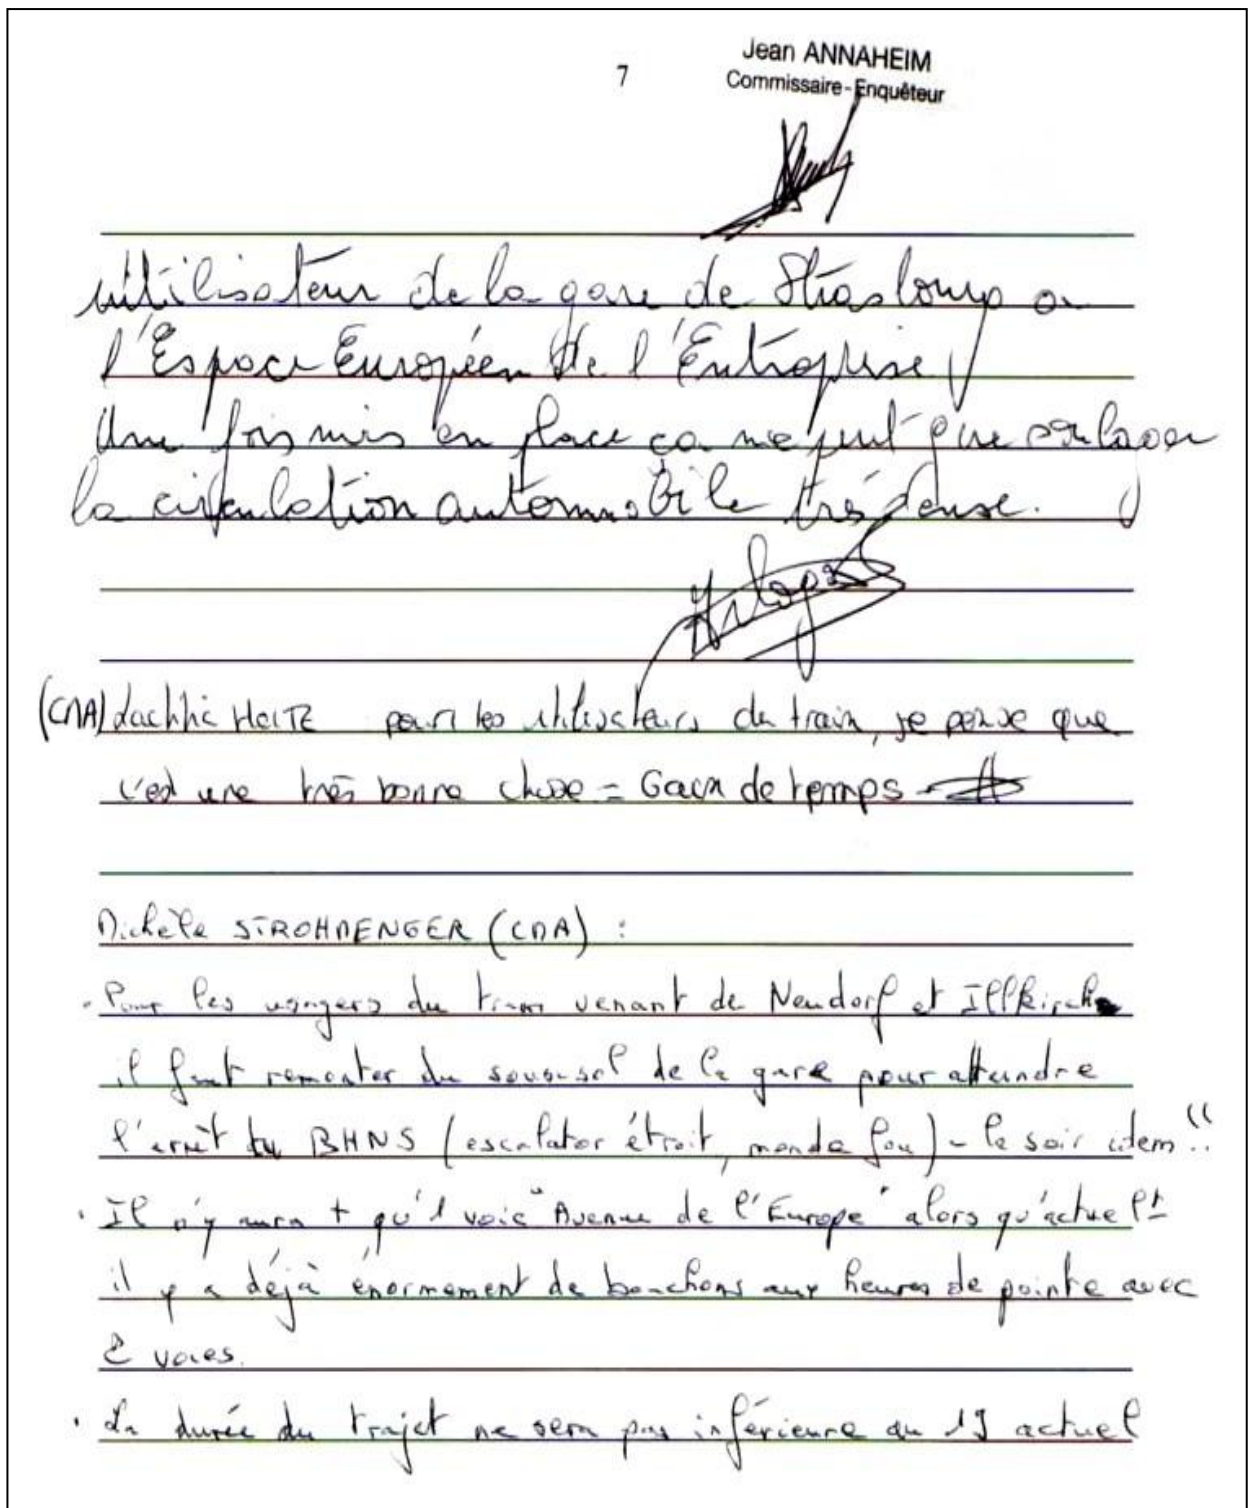 7
Jean ANNAHEIM
Commissaire-Enquêteur
utilisateur de la gare de Strasbourg a
l'Espace Européen de l'Entreprise
Une fois mis en place ca ne peut que soulager
la circulation automobile très dense.
(CMA) HEITZ pour les utilisateurs du train, je pense que
c'est une très bonne chose = Gain de temps
Michèle STROHMENGER (CMA) :
- Pour les usagers du tram venant de Neudorf et Illkirch
il faut remonter du sous-sol de la gare pour atteindre
l'arrêt du BHNS (escalator étroit, monde fou) - le soir idem !!
. Il n'y aura + qu'1 voie "Avenue de l'Europe" alors qu'actuelt
il y a déjà énormément de bouchons aux heures de pointe avec
2 voies.
. La durée du trajet ne sera pas inférieure au 19 actuel